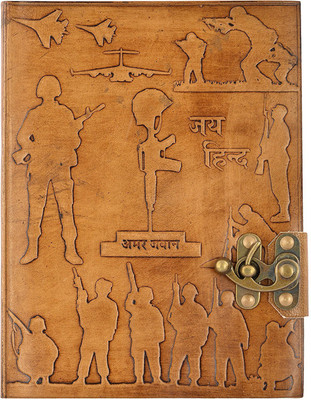 जय
हिन्द
अमर जवान